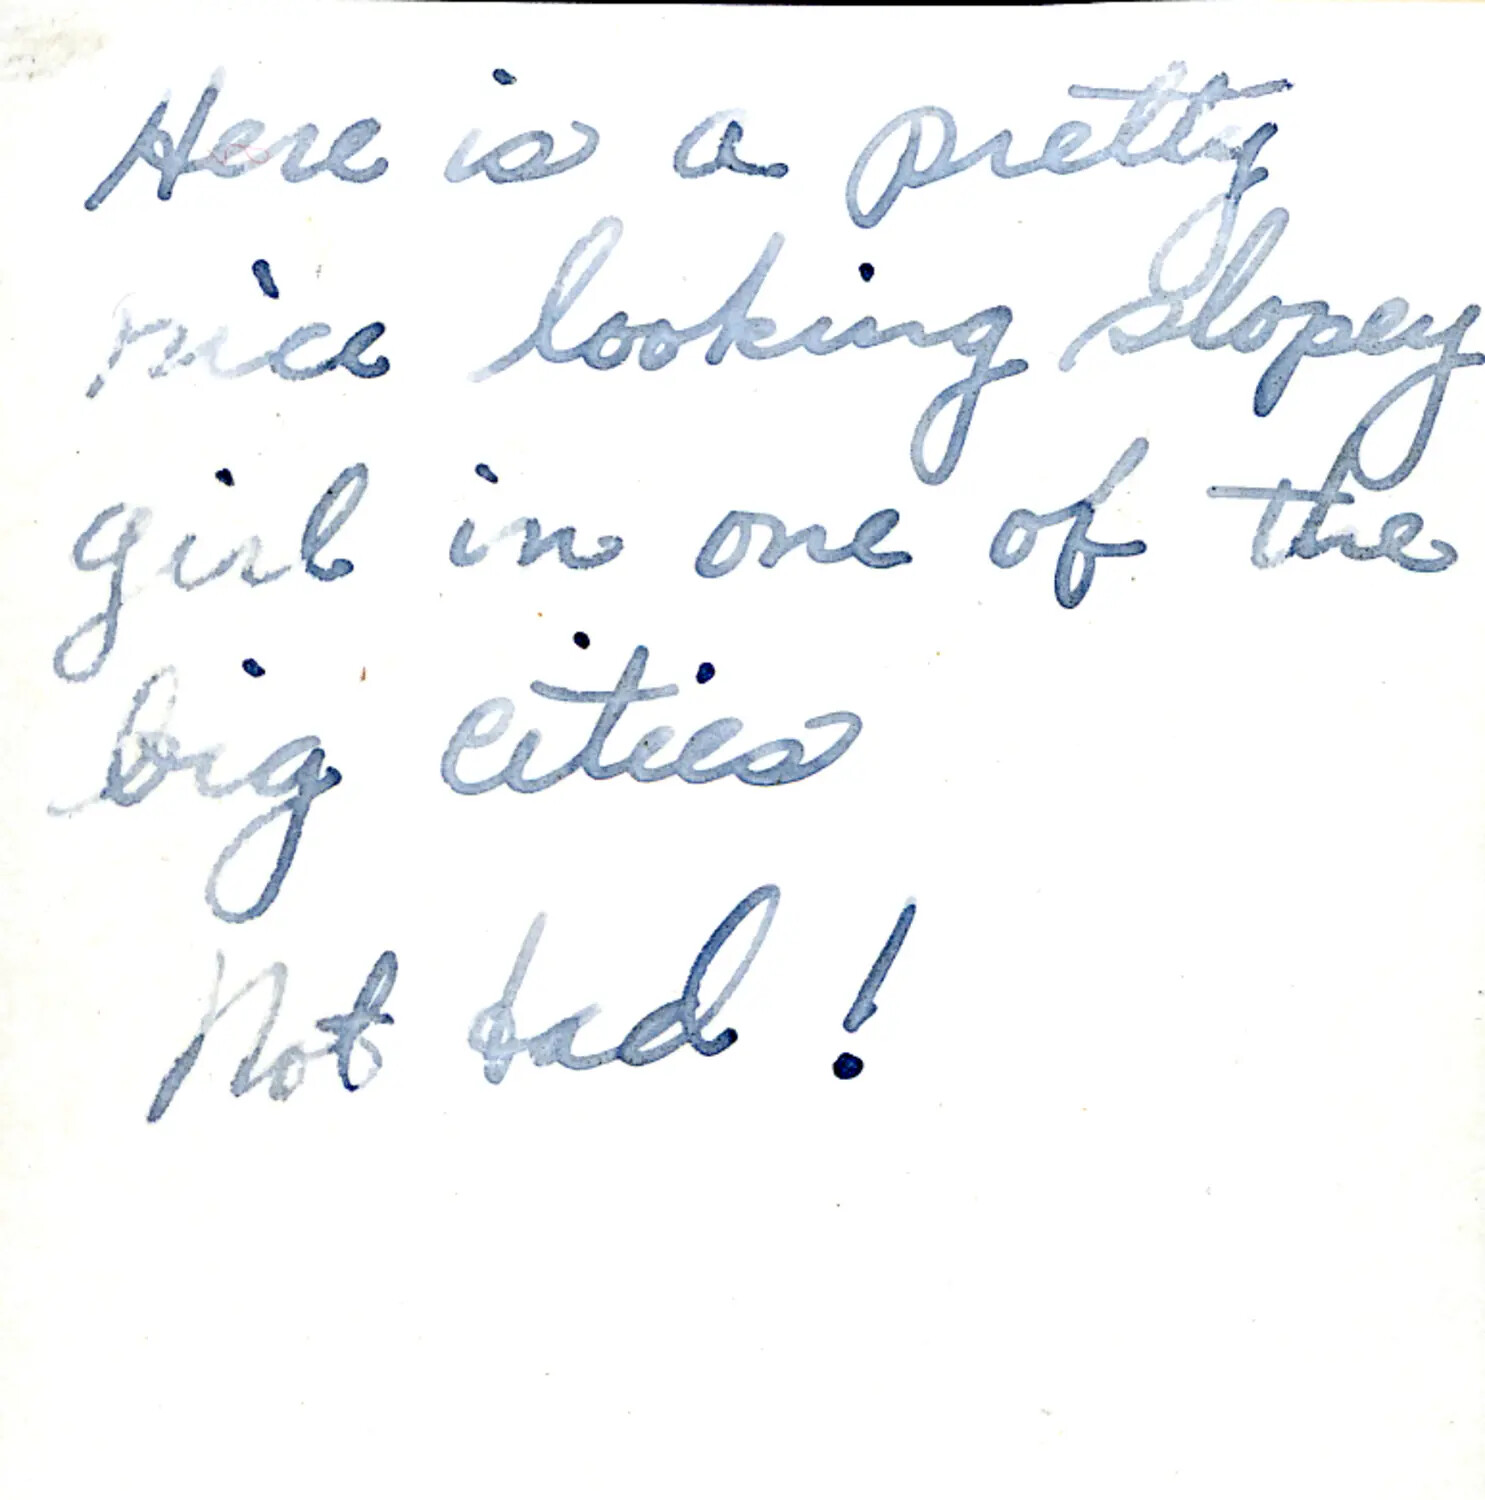 Here is a pretty
nice looking slopey
girl in one of the
big cities
Not bad!